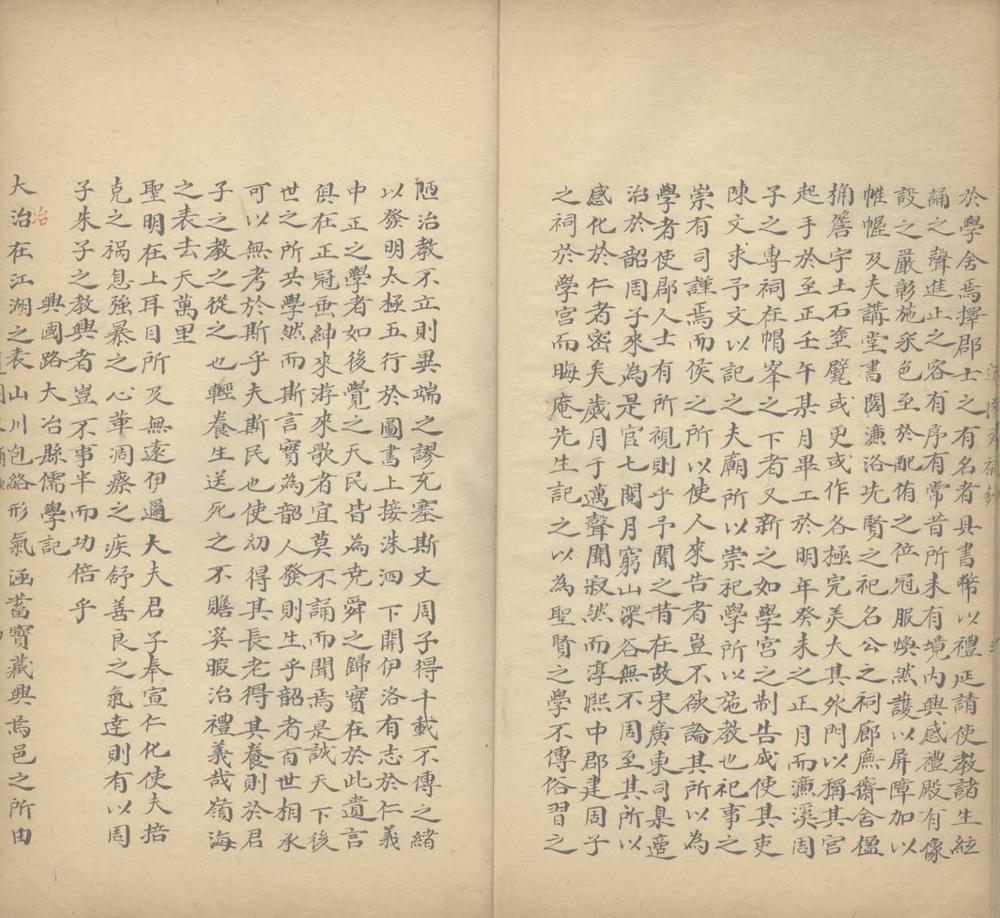 於學舍焉擇郡士之有名者具書幣以禮延請使教諸生絃
誦之聲進止之容有序有常昔所未有境內興感禮殿有像
設之嚴彰施采色至於配侑之位冠服煥然護以屏障加以
帷幄及夫講堂書閣濂洛先賢之祀名公之祠廊廡齋舍楹
桷簷宇土石塗甓或更或作各極完美大其外門以稱其宮
起手於至正壬午某月畢工於明年癸未之正月而濂溪周
子之專祠在帽峯之下者又新之如學宮之制告成使其吏
陳文求予文以記之夫廟所以崇祀學所以施教也祀事之
崇有司謹焉而侯之所以使人來告者豈不欲論其所以為
學者使郡人士有所視則乎予聞之昔在故宋廣東司臬適
治於韶周子來為是官七閱月窮山深谷無不周至其所以
感化於仁者密矣歲月于邁聲聞寂然而淳熙中郡建周子
之祠於學宮而晦庵先生記之以為聖賢之學不傳俗習之
陋治教不立則異端之謬充塞斯文周子得千載不傳之緒
以發明太極五行於圖書上接洙泗下開伊洛有志於仁義
中正之學者如後覺之天民皆為堯舜之歸實在於此遺言
俱在正冠垂紳來游來歌者宜莫不誦而聞焉是誠天下後
世之所共學然而斯言實為韶人發則生乎韶者百世相承
可以無考於斯乎夫斯民也使幼得其長老得其養則於君
子之教之從之也輕養生送死之不贍奚暇治禮義哉嶺海
之表去天萬里
聖明在上耳目所及無遠伊邇大夫君子奉宣仁化使夫掊
克之禍息強暴之心革凋瘵之疾舒善良之氣達則有以周
子朱子之教興者豈不事半而功倍乎
興國路大冶縣儒學記
冶
大治在江湖之表山川包絡形氣涵蓄寶藏興焉邑之所由